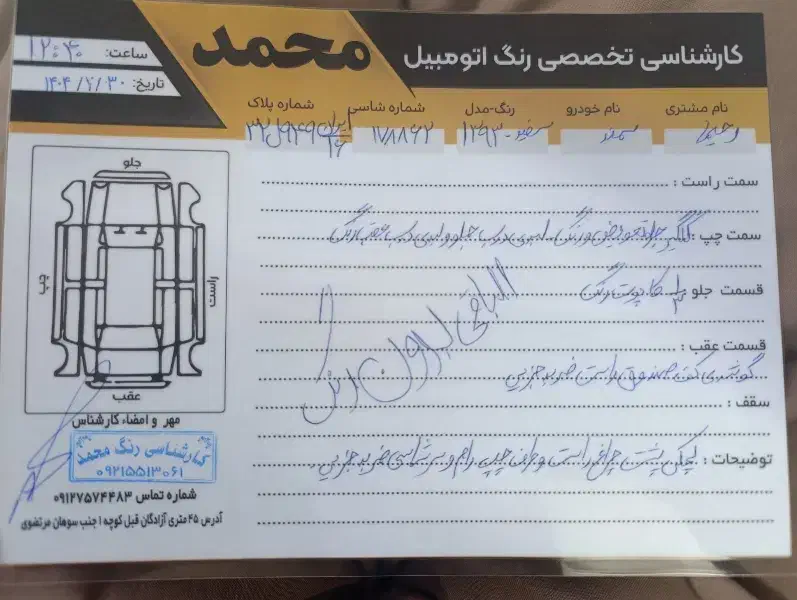 کارشناسی تخصصی رنگ اتومبیل
محمد
ساعت: ۱۲:۴۰
تاریخ: ۱۴۰۴/۷/۳۰
نام مشتری نام خودرو رنگ-مدل شماره شاسی شماره پلاک
رحیمی سمند سفید-۱۳۹۳ ۱۱۷۸۸۶۲ ایران ۱۶
سمت راست :
سمت چپ : گلگیر جلو تعویض و رنگ. لبه‌ی درب جلو و لبه‌ی درب عقب رنگ
قسمت جلو ۱/۲ کاپوت رنگ
قسمت عقب :
گوشه‌ی کف صندوق راست ضربه جزیی
سقف :
الباقی بدون رنگ
توضیحات : لچکی پشت چراغ راست و طرف چپ رام و سرشاسی ضربه جزیی
جلو
چپ
راست
عقب
مهر و امضاء کارشناس
کارشناسی رنگ محمد
۰۹۲۱۵۵۱۳۰۶۱
شماره تماس ۰۹۱۲۷۵۷۴۴۸۳
آدرس ۴۵ متری آزادگان قبل کوچه ۱ جنب سوهان مرتضوی